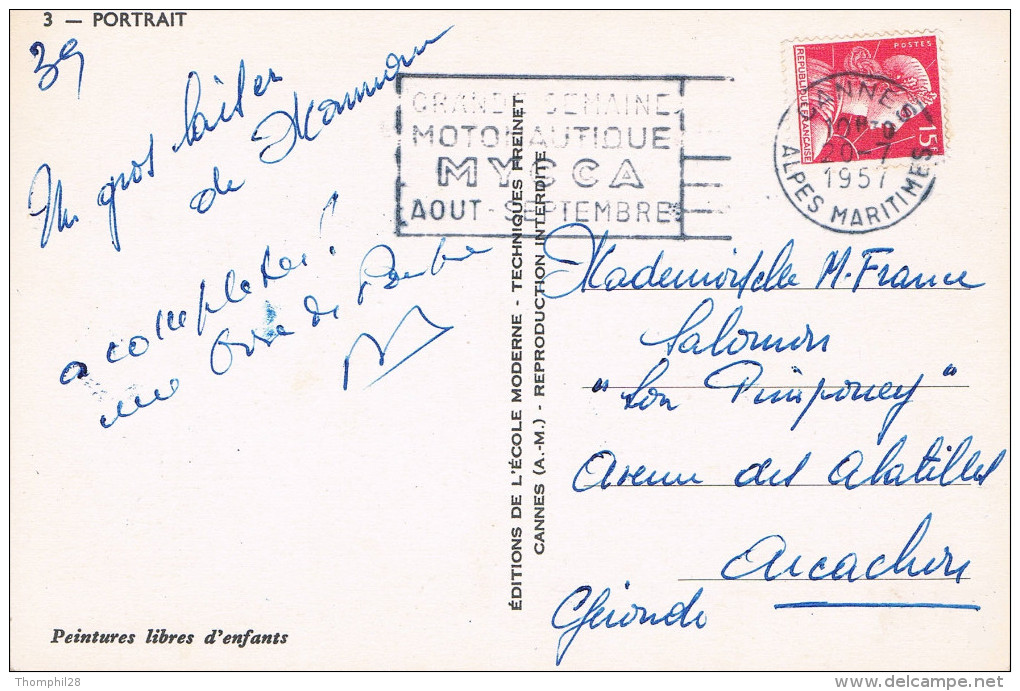 3 — PORTRAIT
39
Un gros baiser
de Maman
a completer!
une
GRANDE SEMAINE
MOTONAUTIQUE
MYCCA
AOUT - SEPTEMBRE
POSTES
REPUBLIQUE FRANÇAISE
15
CANNES
20-7
1957
ALPES MARITIMES
ÉDITIONS DE L'ÉCOLE MODERNE - TECHNIQUES FREINET
CANNES (A.-M.) - REPRODUCTION INTERDITE
Mademoiselle M. France
Salomon
"Lou Pimpouey"
Avenue des Abatilles
Arcachon
Gironde
Peintures libres d'enfants
Thomphil28
delcampe.net